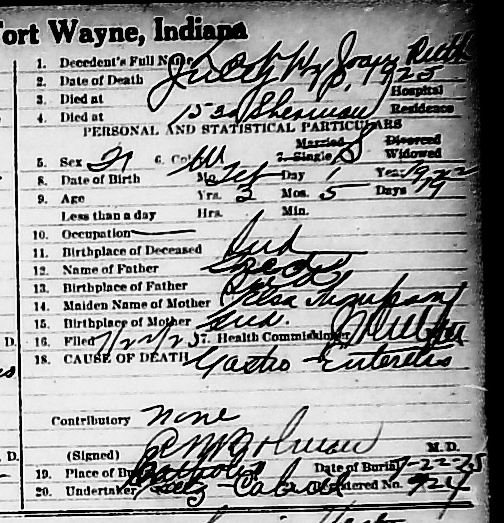 ort Wayne, Indiana
1. Decedent's Full Name Joan Ruth
2. Date of Death July 1925
3. Died at Hospital
4. Died at 1532 Sherman Residence
PERSONAL AND STATISTICAL PARTICULARS
Married Divorced
5. Sex 6. Col W 7. Single S Widowed
8. Date of Birth Mo. Feb Day 1 Year 1922
9. Age Yrs. 3 Mos. 5 Days 19
Less than a day Hrs. Min.
10. Occupation
11. Birthplace of Deceased Ind
12. Name of Father
13. Birthplace of Father Ind
14. Maiden Name of Mother Thompson
15. Birthplace of Mother Ind.
D. 16. Filed 7/22/25 17. Health Commissioner
18. CAUSE OF DEATH Gastro-Enteretis
Contributory None
D. (Signed) M. D.
19. Place of Burial Catholic Date of Burial 7-22-25
20. Undertaker Registered No. 924